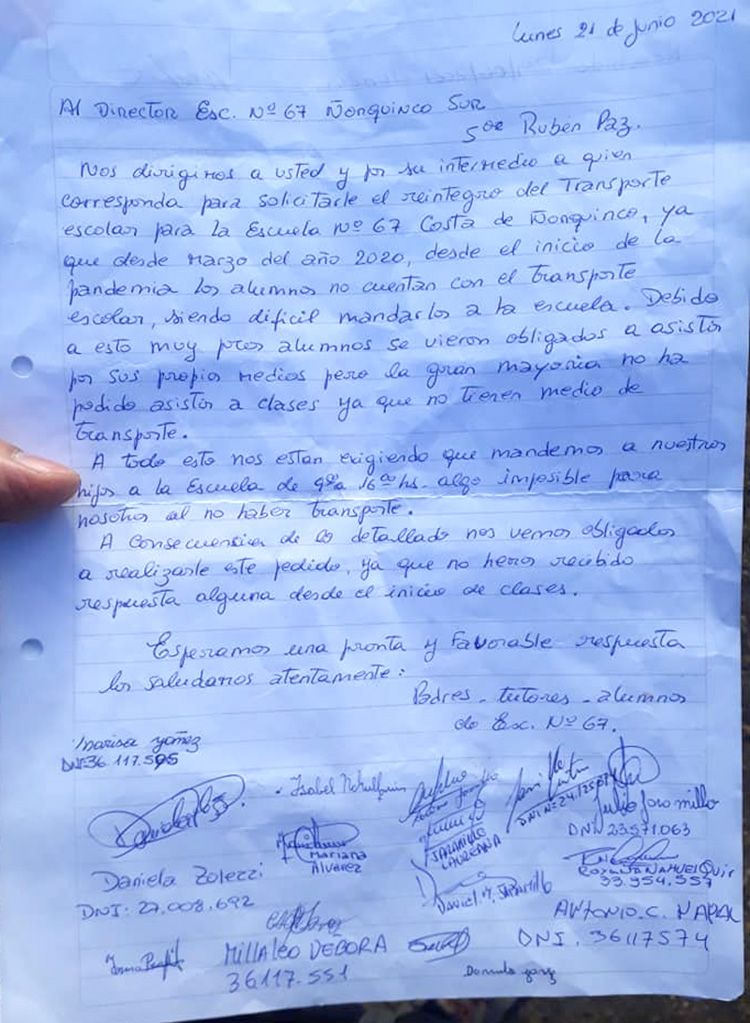 Lunes 21 de junio 2021
Al Director Esc. Nº 67 Ñorquinco Sur
Sor Rubén Paz.
Nos dirigimos a usted y por su intermedio a quien
corresponda para solicitarle el reintegro del Transporte
escolar para la Escuela Nº 67 Costa de Ñorquinco, ya
que desde Marzo del año 2020, desde el inicio de la
pandemia los alumnos no cuentan con el transporte
escolar, siendo dificil mandarlos a la escuela. Debido
a esto muy pocos alumnos se vieron obligados a asistir
por sus propios medios pero la gran mayoria no ha
podido asistir a clases ya que no tienen medio de
transporte.
A todo esto nos estan exigiendo que mandemos a nuestros
hijos a la Escuela de 9 a 16 hs. algo imposible para
nosotros al no haber transporte.
A consecuencia de lo detallado nos vemos obligados
a realizarle este pedido, ya que no hemos recibido
respuesta alguna desde el inicio de clases.
Esperamos una pronta y favorable respuesta
los saludamos atentamente:
Padres - tutores - alumnos
de Esc. Nº 67.
Marisa yañez
DNI 36.117.595
Isabel
Julio Jaramillo
DNI. 23571.063
JARAMILLO
LAUREANA
Mariana
Alvarez
Daniela Zolezzi
DNI: 27.008.692
ROXANA NAHUELQUIR
33.954.557
Daniel M. JARAMILLO
ANTONIO. C. NAPAL
DNI. 36117574
MILLALEO DEBORA
36117.551